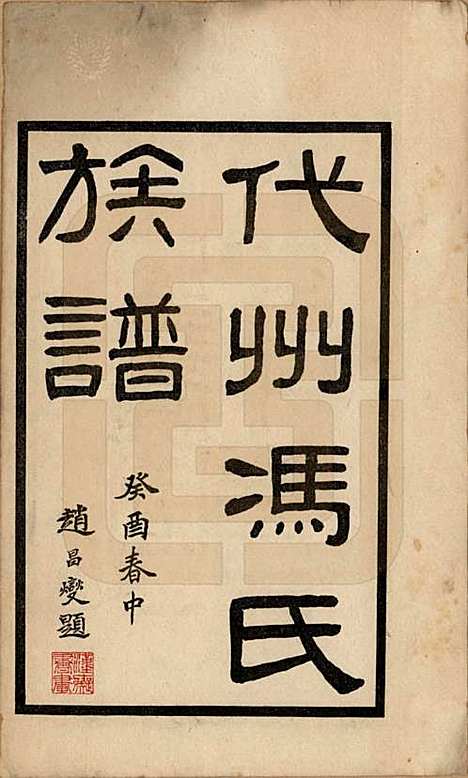 代州馮氏
族譜
癸酉春中
趙昌燮題